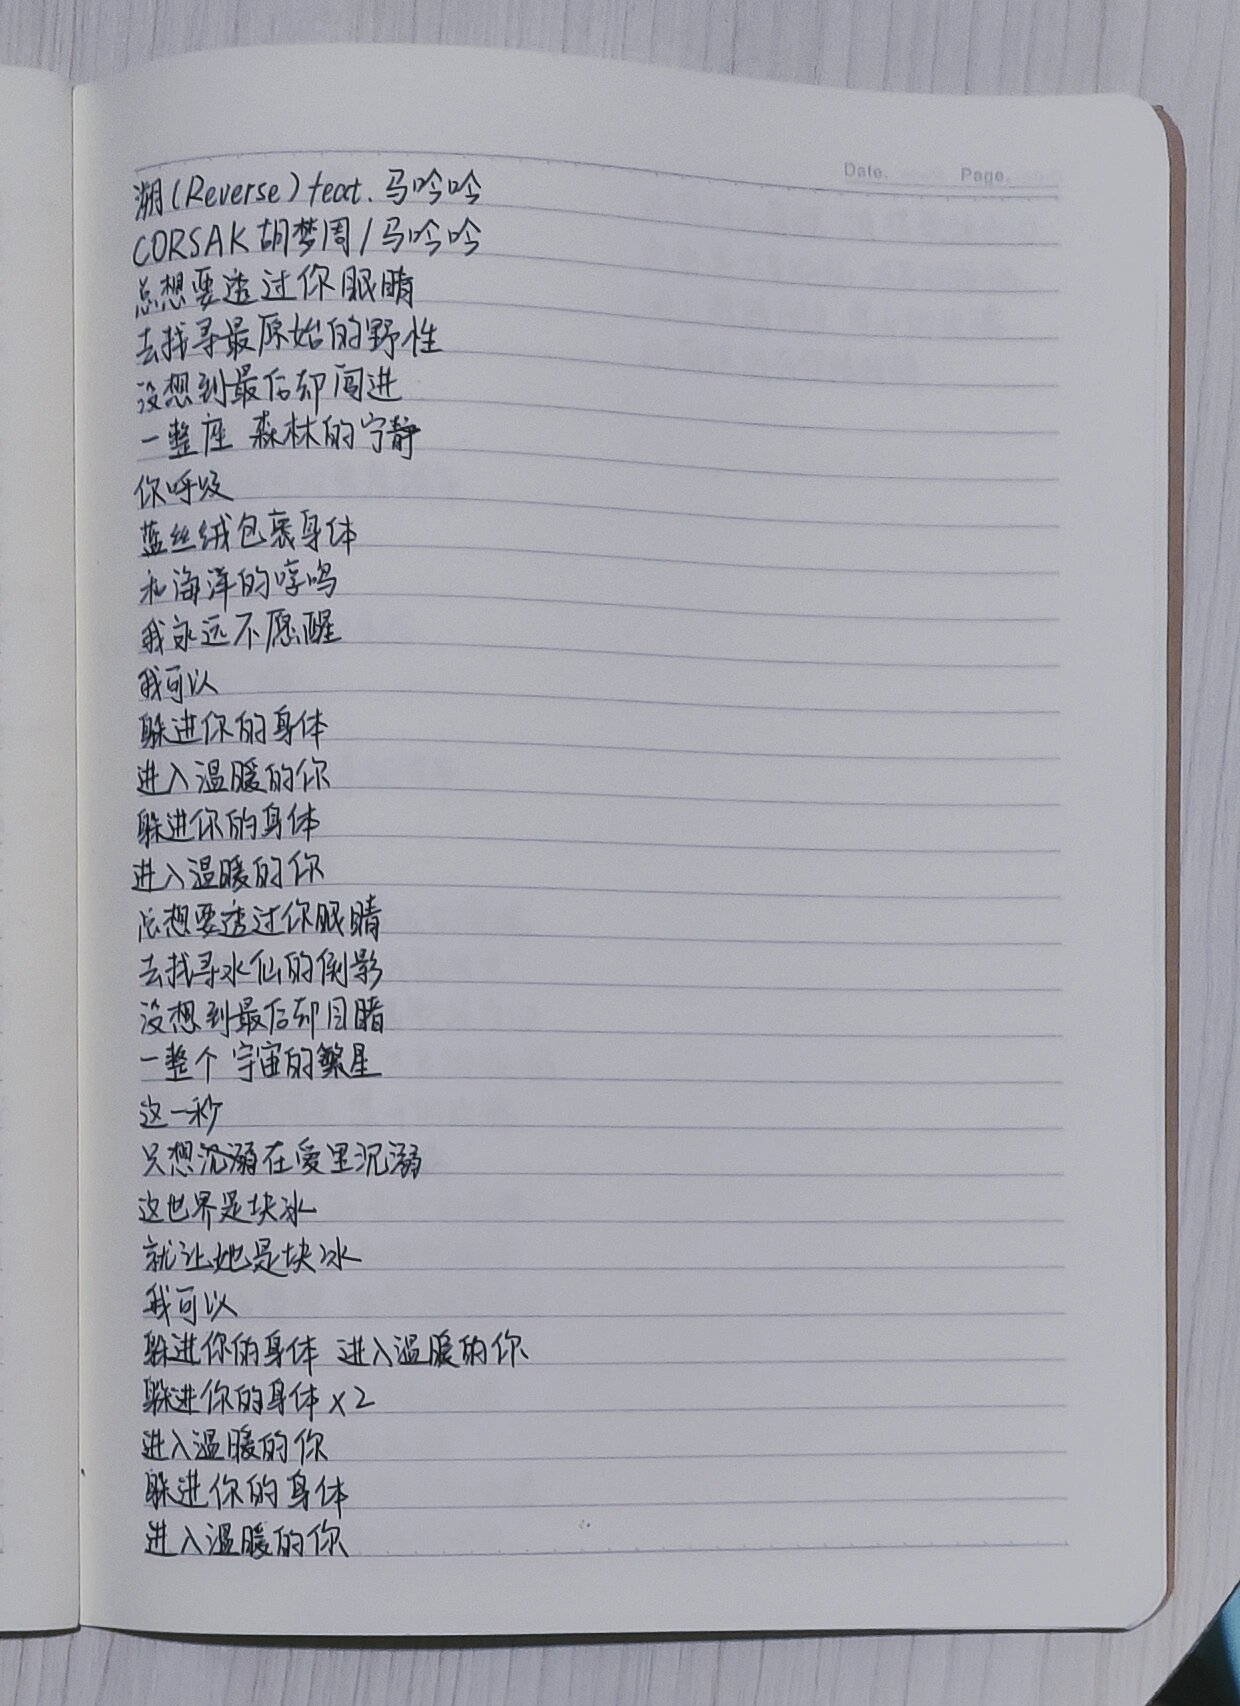 Date. Page.
溯(Reverse)feat.马吟吟
CORSAK胡梦周/马吟吟
总想要透过你眼睛
去找寻最原始的野性
没想到最后却闯进
一整座 森林的宁静
你呼吸
蓝丝绒包裹身体
和海洋的哼鸣
我永远不愿醒
我可以
躲进你的身体
进入温暖的你
躲进你的身体
进入温暖的你
总想要透过你眼睛
去找寻水仙的倒影
没想到最后却目睹
一整个 宇宙的繁星
这一秒
只想沉溺在爱里沉溺
这世界是块冰
就让她是块冰
我可以
躲进你的身体 进入温暖的你
躲进你的身体×2
进入温暖的你
躲进你的身体
进入温暖的你